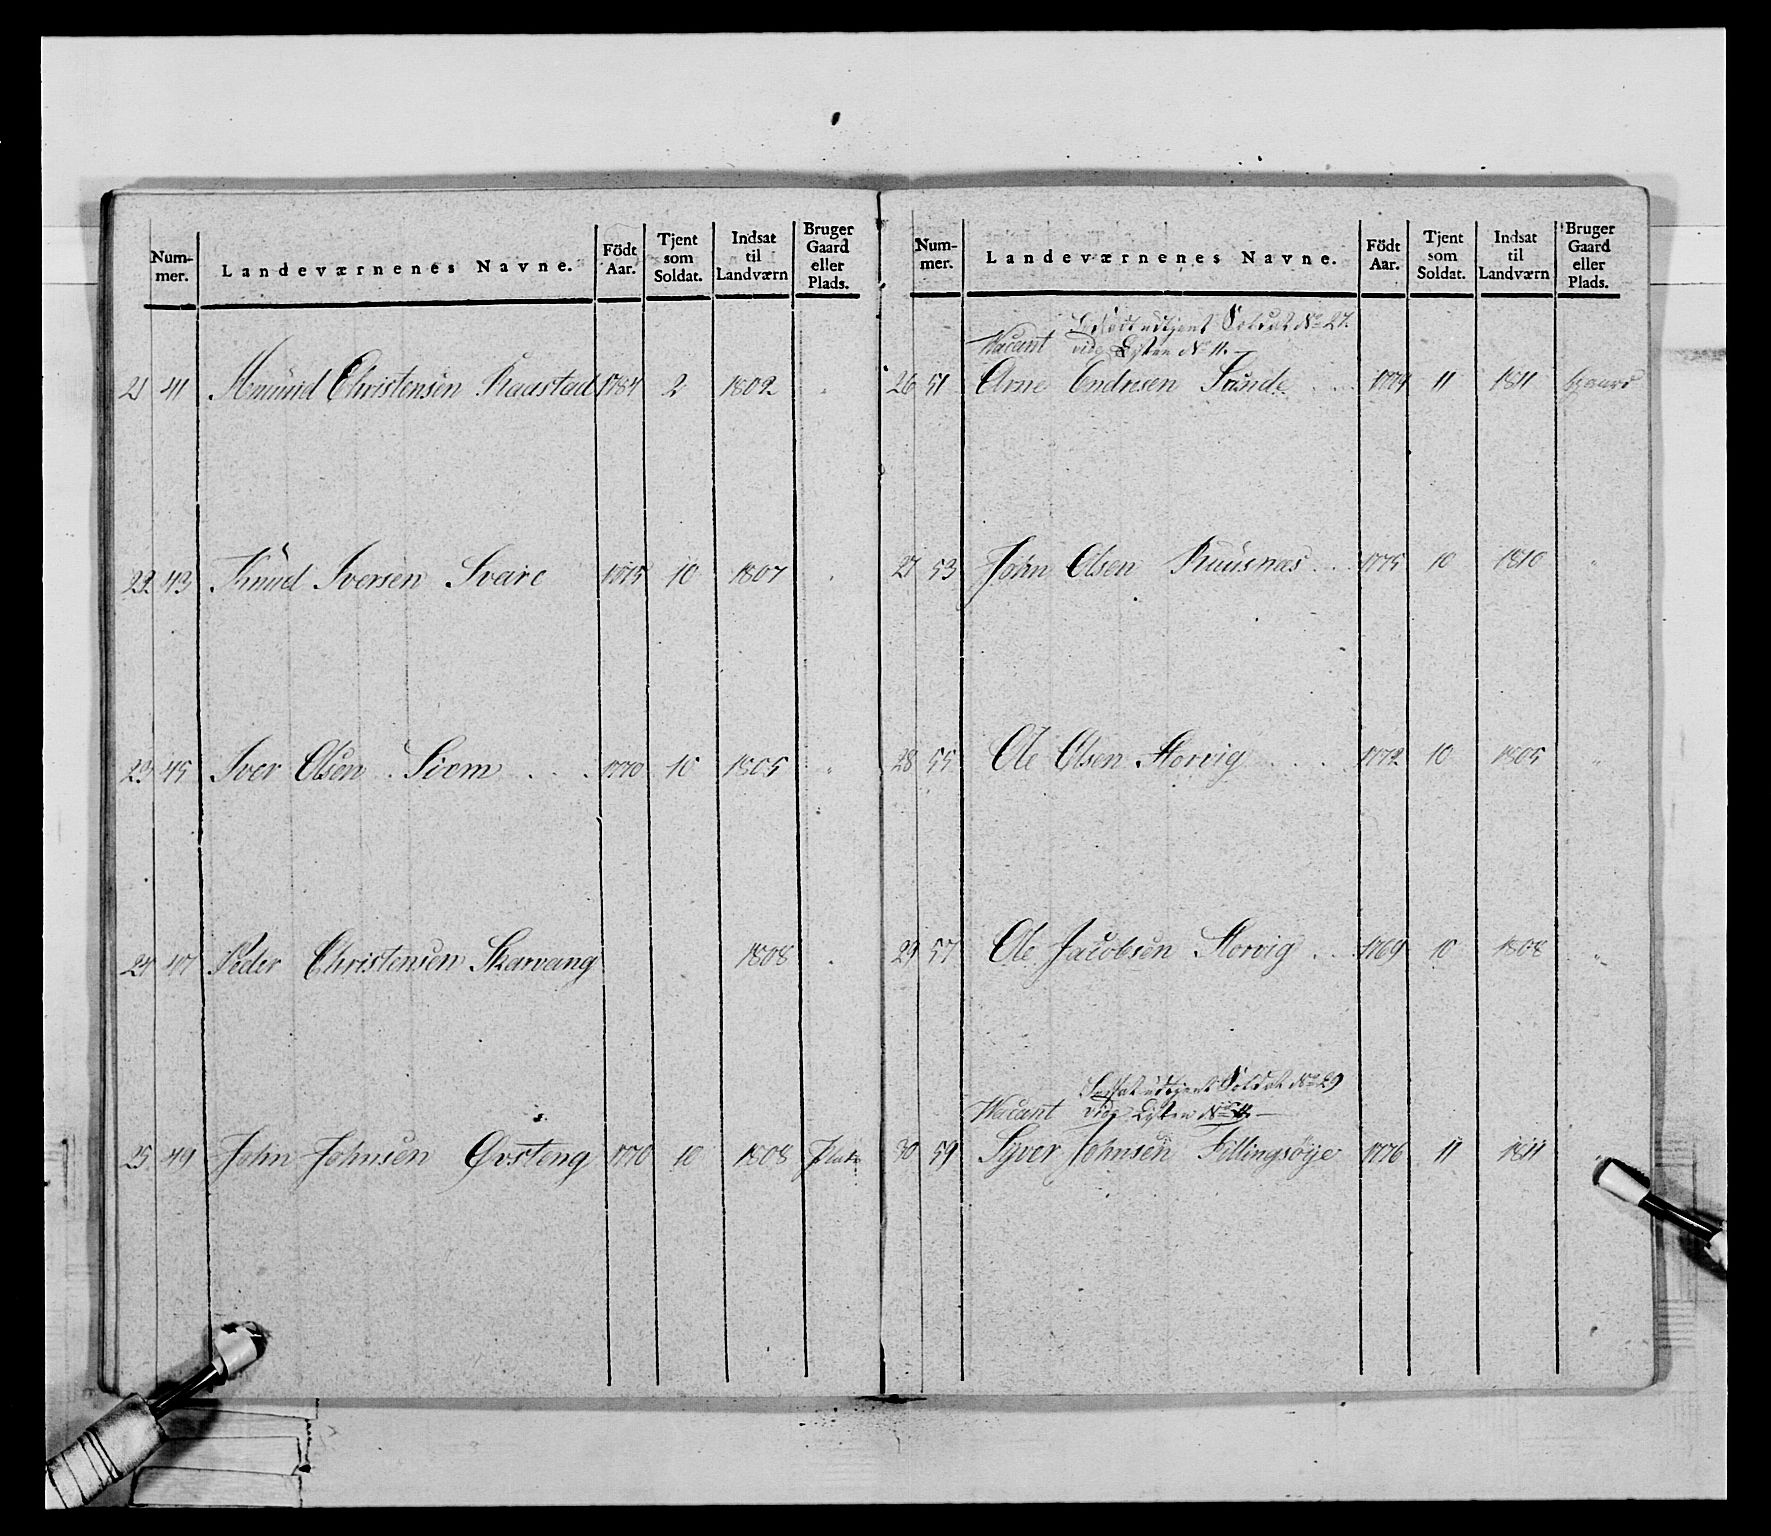 Num-
mer.
Landeværnenes Navne.
Födt
Aar.
Tjent
som
Soldat.
Indsat
til
Landværn
Bruger
Gaard
eller
Plads.
21 41 Amund Christensen Raastad 1784 2 1802
22 43 Knud Iversen Sveire 1775 10 1807
23 45 Iver Olsen Siem 1770 10 1805 "
24 47 Peder Christensen Skarvang 1808
25 49 John Johnsen Øvsteng 1770 10 1808 Plads
Num-
mer.
Landeværnenes Navne.
Födt
Aar.
Tjent
som
Soldat.
Indsat
til
Landværn
Bruger
Gaard
eller
Plads.
udtjent Soldat No 27.
Vacant vide Listen No 11.
26 51 Arne Endresen Sunde 1779 11 1811 Gaard
27 53 John Olsen Ruusnæs 1775 10 1810 "
28 55 Ole Olsen Storvig 1772 10 1805 "
29 57 Ole Jacobsen Storvig 1769 10 1808 "
Indsat udtjent Soldat No 29
Vacant vide Listen No 11.
30 59 Syver Johnsen Fillingsøye 1776 11 1811